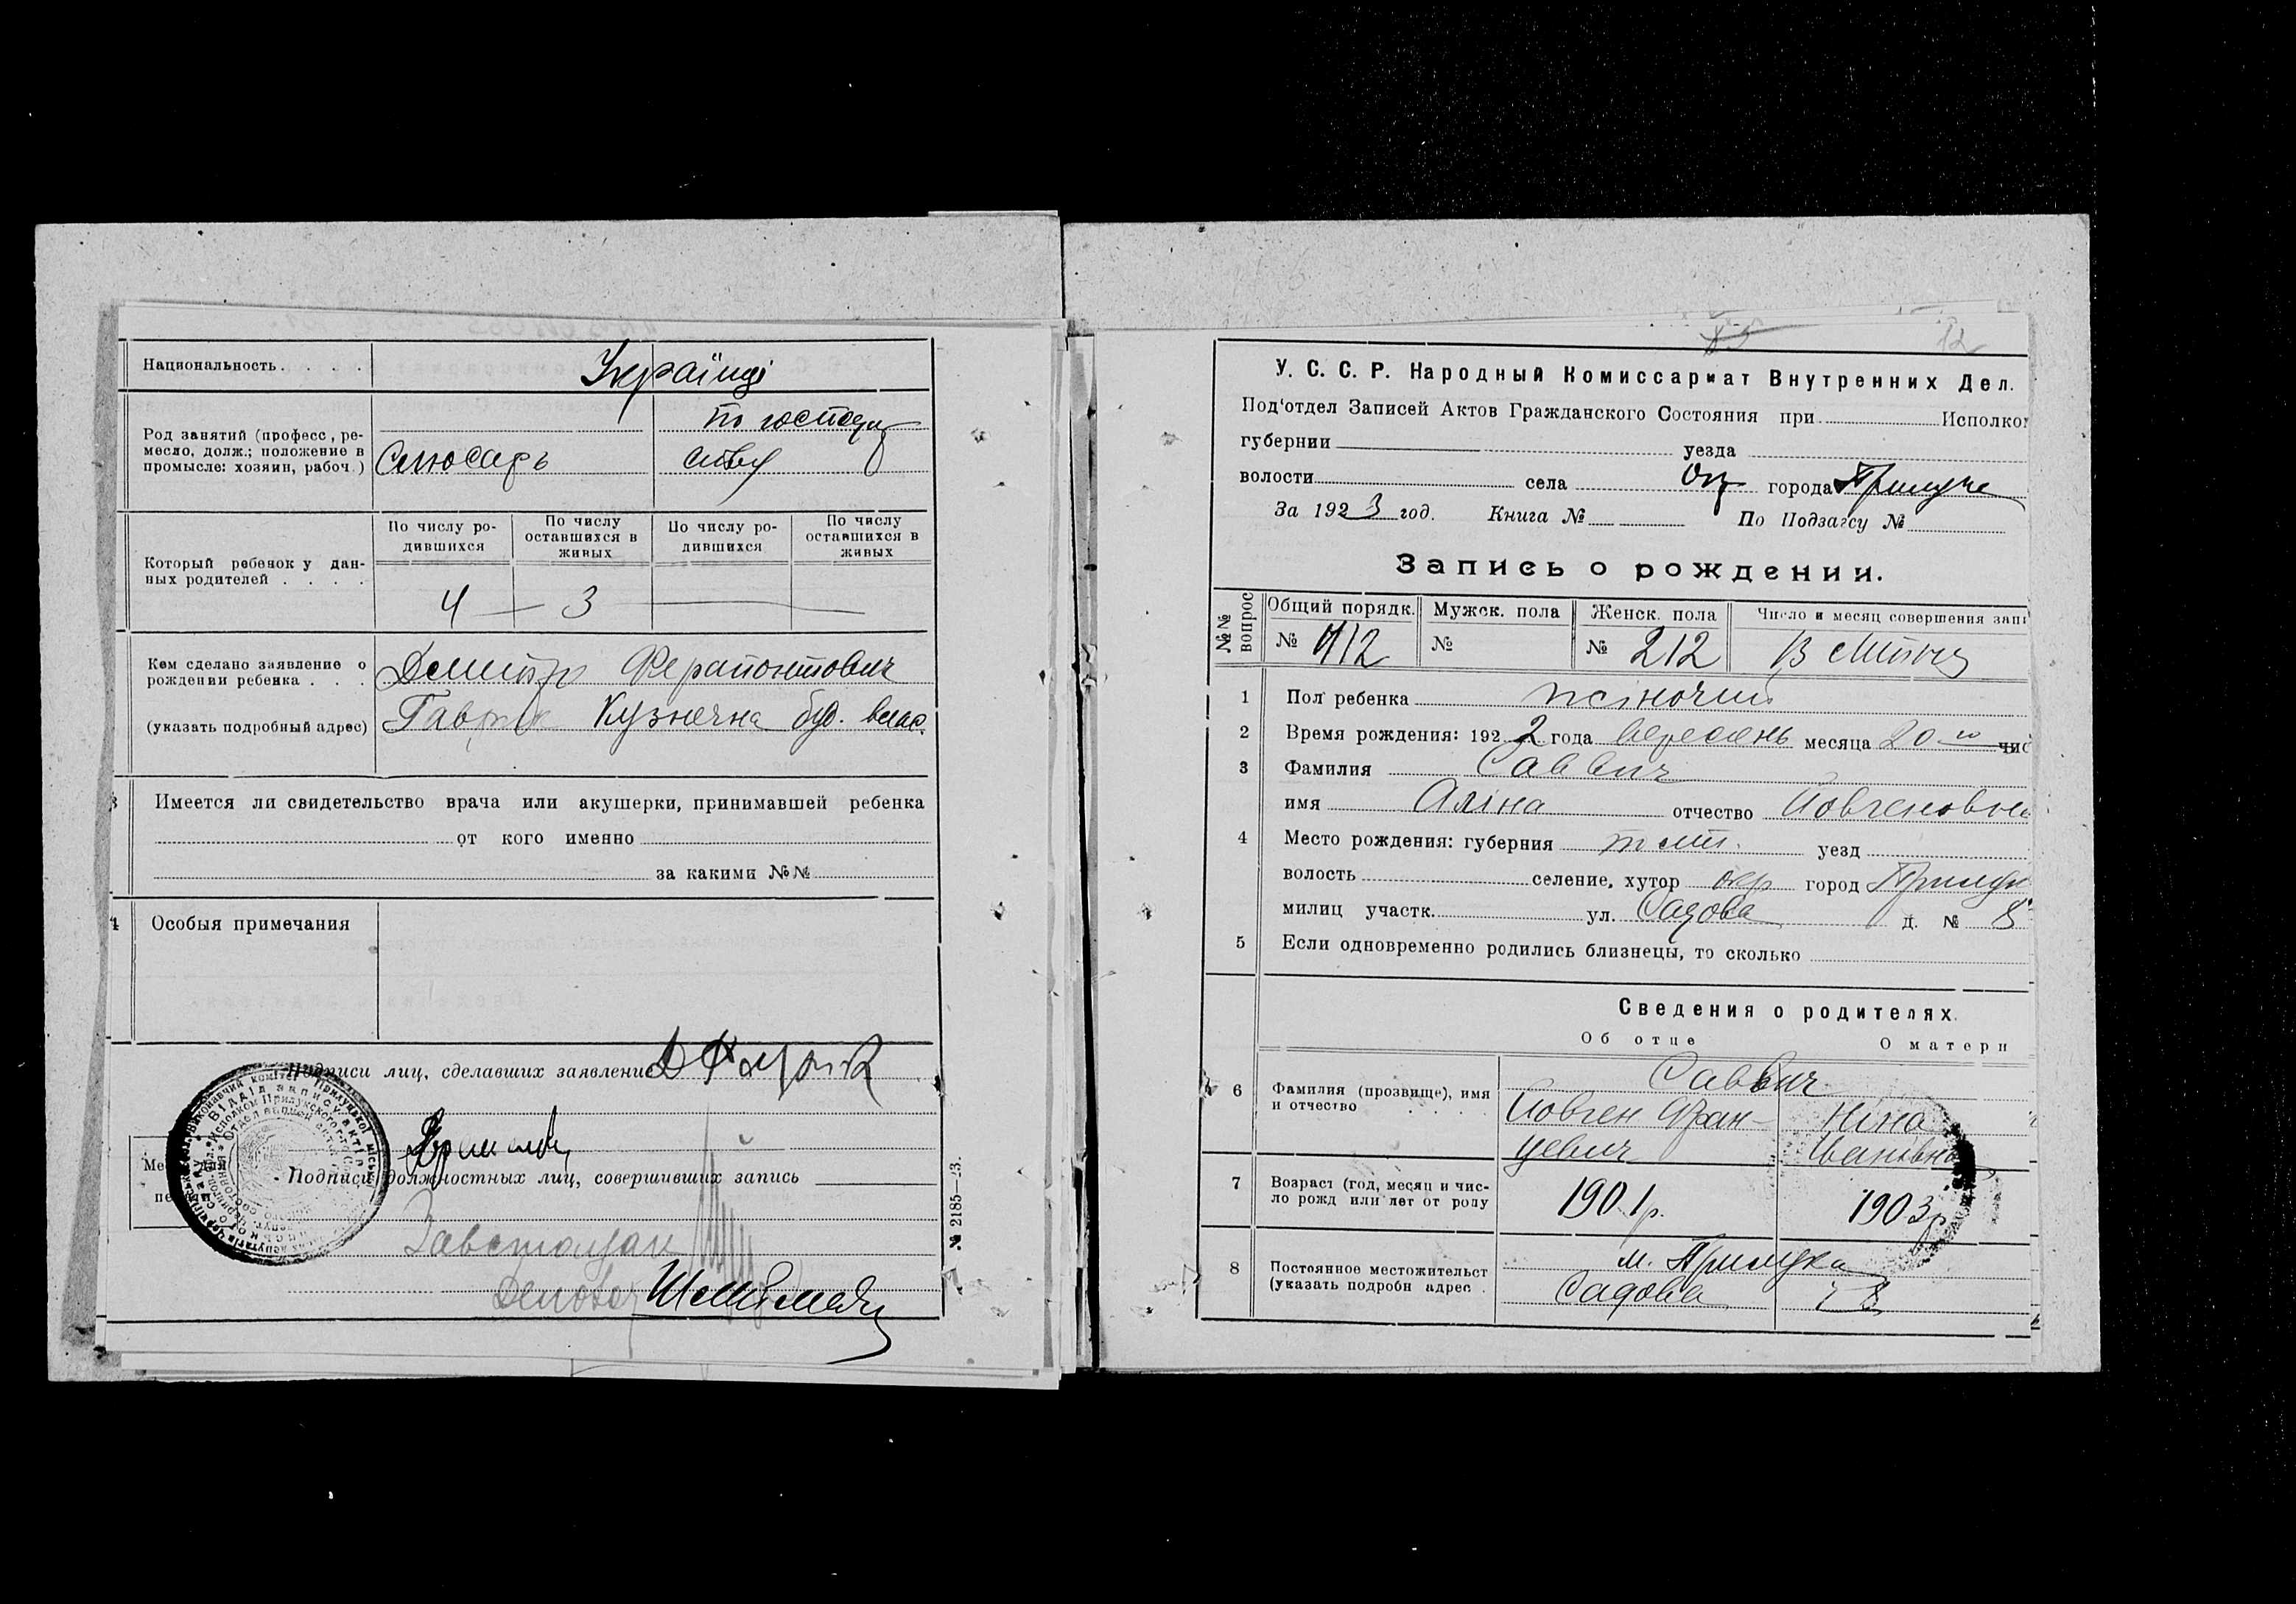 Национальность. . . . .
Українці
Род занятий (професс, ре-
месло, долж.; положение в
промысле: хозяин, рабоч.)
Слюсарь
по господар
ству
Который ребенок у дан-
ных родителей . . . .
По числу ро-
дившихся
По числу
оставшихся в
живых
По числу ро-
дившихся
По числу
оставшихся в
живых
4 — 3
Кем сделано заявление о
рождении ребенка . . .
(указать подробный адрес)
Дмитро Ферапонтович
Кузнечна буд. влас.
3 Имеется ли свидетельство врача или акушерки, принимавшей ребенка
от кого именно
за какими №№
4 Особыя примечания
Подписи лиц, сделавших заявление
Подписи должностных лиц, совершивших запись
№ 2185—23.
12
У. С. С. Р. Народный Комиссариат Внутренних Дел.
Под‘отдел Записей Актов Гражданского Состояния при Исполко
губернии уезда
волости села города Прилуке
За 1923 год. Книга № По Подзагсу №
Запись о рождении.
№№ вопрос
Общий порядк. Мужск. пола Женск. пола Число и месяц совершения запи
№ 412 № № 212
1 Пол ребенка жіночий
2 Время рождения: 1922 года вересень месяца 20-го чис
3 Фамилия Саввич
имя Аліна отчество Йовгеновна
4 Место рождения: губерния уезд
волость селение, хутор окр город Прилук
милиц участк. ул. Садова д. № 8
5 Если одновременно родились близнецы, то сколько
Сведения о родителях.
Об отце О матери
6 Фамилия (прозвище), имя
и отчество . . . .
Саввич
Йовген Фран-
цевич
Ніна
Іванівна
7 Возраст (год, месяц и чис-
ло рожд или лет от роду
1901р. 1903р
8 Постоянное местожительст
(указать подробн адрес .
м. Прилука
Садова 8